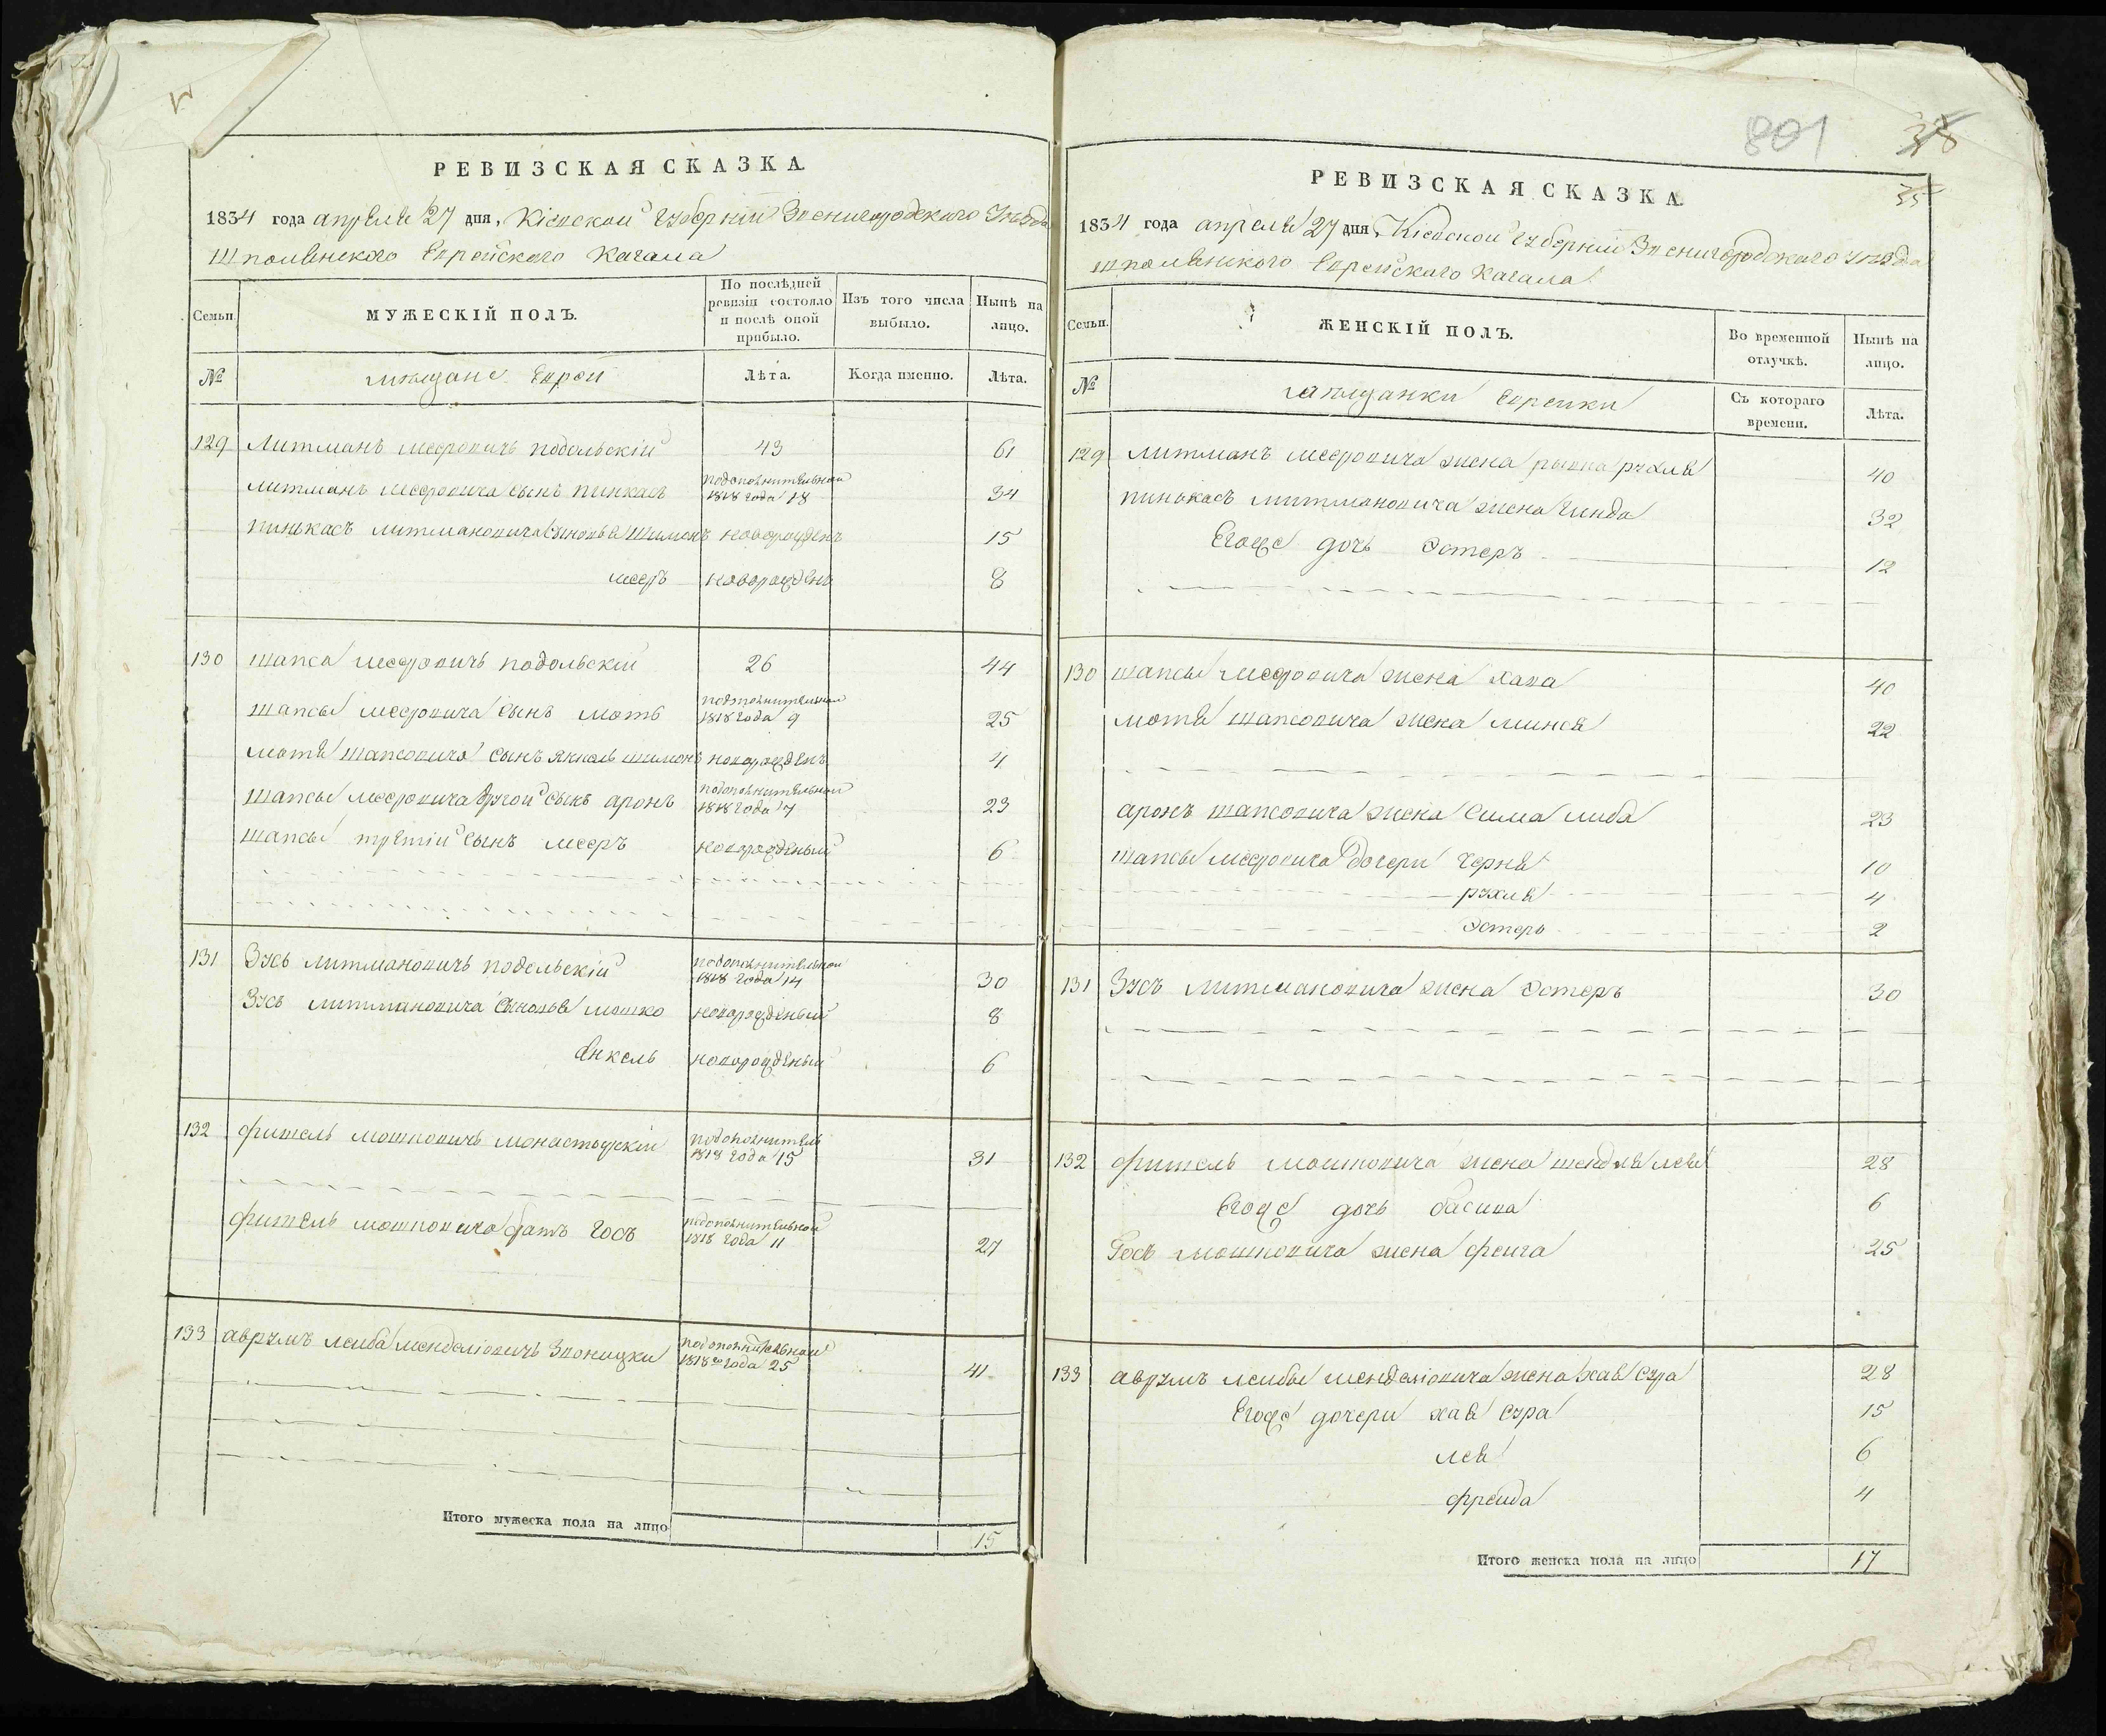 РЕВИЗСКАЯ СКАЗКА
1834 года апреля 27 дня, Кіевской Губерніи Звенигородского Уѣзда
Шполянского Еврейского Кагала
Семьи.
МУЖЕСКІЙ ПОЛЪ.
По послѣдней ревизіи состояло и послѣ оной прибыло.
Изъ того числа выбыло.
Нынѣ на лицо.
№
мѣщане Евреи
Лѣта.
Когда именно.
Лѣта.
129 Литманъ мееровичъ подольскій 43 61
литманъ мееровича сынъ пинкасъ подополнительной 1818 года 18 34
пинькасъ литмановича сыновья Шимонъ новорожденъ 15
мееръ новорожденъ 8
130 шапса мееровичъ подольскій 26 44
шапсы мееровича сынъ моть подополнительной 1818 года 9 25
мотя шапсовича сынъ янкель шимонъ новорожденъ 4
шапсы мееровича другой сынъ аронъ подополнительной 1818 года 7 23
шапсы третій сынъ мееръ новорожденый 6
131 Зусь литмановичъ подольскій подополнительной 1818 года 14 30
Зусь литмановича сыновья мошко новорожденый 8
Янкель новорожденый 6
132 фишель мошковичъ монастырскій подополнитель 1818 года 15 31
фишель мошковича братъ Госъ подополнительной 1818 года 11 27
133 аврумъ леиба менделіовичъ подополнительной 1818го года 25 41
Итого мужеска пола на лицо 15
801
38
35
РЕВИЗСКАЯ СКАЗКА
1834 года апреля 27 дня Кіевской губерніи Звенигородского уѣзда
шполянского Еврейского Кагала
Семьи.
ЖЕНСКІЙ ПОЛЪ.
Во временной отлучкѣ.
Нынѣ на лицо.
№
мѣщанки Евреики
Съ котораго времени.
Лѣта.
129 литманъ мееровича жена рывка рухля 40
пинькасъ литмановича жена Гинда 32
Егоже дочь Эстеръ 12
130 шапсы мееровича жена хава 40
мотя шапсовича жена минся 22
аронъ шапсовича жена Сима либа 23
шапсы мееровича дочери Черня 10
рухля 4
Эстеръ 2
131 Зусъ литмановича жена Эстеръ 30
132 фишель мошковича жена шендля лея 28
Егоже дочь басива 6
Госъ мошковича жена фейга 25
133 аврумъ леибы менделіовича жена хая сура 28
Егоже дочери хая сура 15
лея 6
фреида 4
Итого женска пола на лицо 17